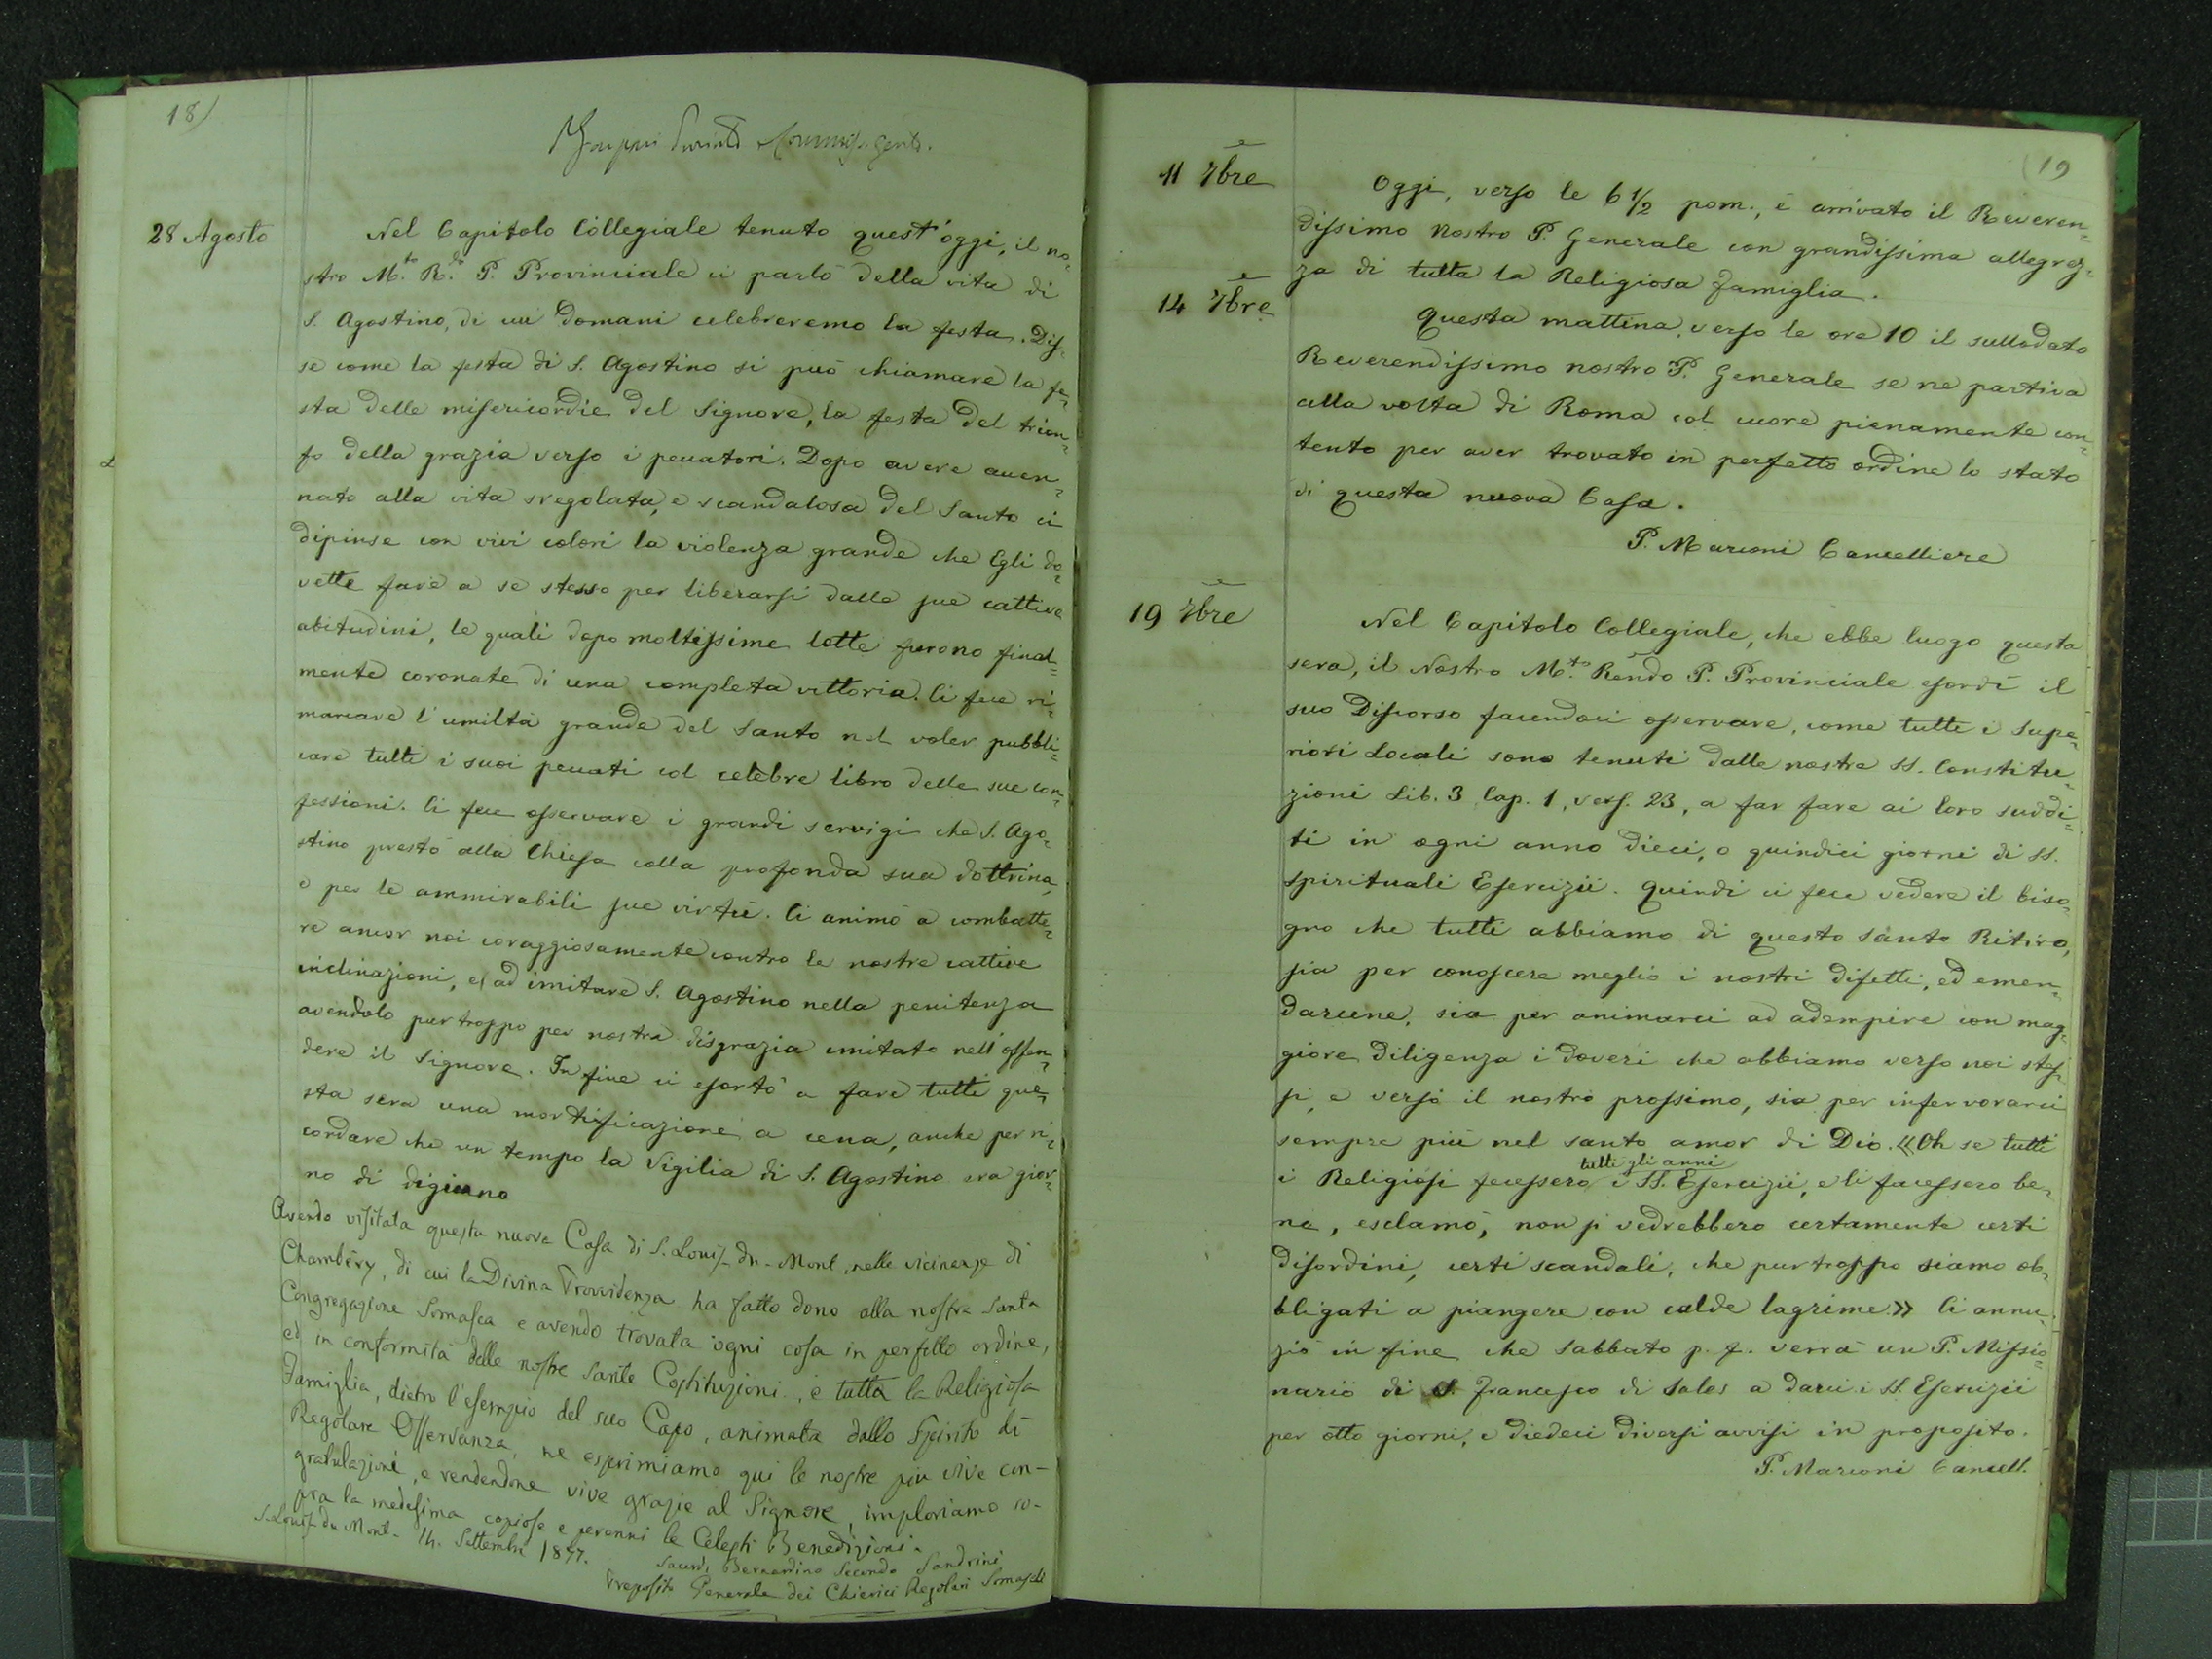 18)
28 Agosto
Nel Capitolo Collegiale tenuto quest'oggi, il no=
stro M.to R.do P. Provinciale ci parlò della vita di
S. Agostino, di cui domani celebreremo la festa. Dis=
se come la festa di S. Agostino si può chiamare la fe=
sta delle misericordie del Signore, la festa del trion=
fo della grazia verso i peccatori. Dopo avere accen=
nato alla vita sregolata, e scandalosa del Santo ci
dipinse con vivi colori la violenza grande che Egli do=
vette fare a se stesso per liberarsi dalle sue cattive
abitudini, le quali dopo moltissime lotte furono final=
mente coronate di una completa vittoria. Ci fece ri=
marcare l'umiltà grande del Santo nel voler pubbli=
care tutti i suoi peccati col celebre libro delle sue con=
fessioni. Ci fece osservare i grandi servigi che S. Ago=
stino prestò alla Chiesa colla profonda sua dottrina,
e per le ammirabili sue virtù. Ci animò a combatte=
re ancor noi coraggiosamente contro le nostre cattive
inclinazioni, e ad imitare S. Agostino nella penitenza
avendolo pur troppo per nostra disgrazia imitato nell'offen=
dere il Signore. In fine ci esortò a fare tutti que=
sta sera una mortificazione a cena, anche per ri=
cordare che un tempo la Vigilia di S. Agostino era gior=
no di digiuno
Avendo visitata questa nuova Casa di S. Louis-du-Mont, nelle vicinanze di
Chambéry, di cui la Divina Provvidenza ha fatto dono alla nostra Santa
Congregazione Somasca e avendo trovata ogni cosa in perfetto ordine,
ed in conformità delle nostre Sante Costituzioni, e tutta la Religiosa
Famiglia, dietro l'esempio del suo Capo, animata dallo Spirito di
Regolare Osservanza, ne esprimiamo qui le nostre più vive con-
gratulazioni, e rendendone vive grazie al Signore, imploriamo so-
pra la medesima copiose e perenni le Celesti Benedizioni.
S. Louis du Mont - 14. Settembre 1877.
Sacerd. Bernardino Secondo Sandrini
Preposito Generale dei Chierici Regolari Somaschi
(19
11 7bre
Oggi, verso le 6 1/2 pom., è arrivato il Reveren=
dissimo Nostro P. Generale con grandissima allegrez=
za di tutta la Religiosa famiglia.
14 7bre
Questa mattina, verso le ore 10 il sullodato
Reverendissimo nostro P. Generale se ne partiva
alla volta di Roma col cuore pienamente con=
tento per aver trovato in perfetto ordine lo stato
di questa nuova Casa.
P. Marconi Cancelliere
19 7bre
Nel Capitolo Collegiale, che ebbe luogo questa
sera, il Nostro M.to Rendo P. Provinciale esordì il
suo Discorso facendoci osservare, come tutti i Supe=
riori Locali sono tenuti dalle nostre SS. Constitu=
zioni Lib. 3 Cap. 1, vers. 23, a far fare ai loro suddi=
ti in ogni anno dieci, o quindici giorni di SS.
Spirituali Esercizii. Quindi ci fece vedere il biso=
gno che tutti abbiamo di questo santo Ritiro,
sia per conoscere meglio i nostri difetti, ed emen=
darcene, sia per animarci ad adempire con mag=
giore diligenza i doveri che abbiamo verso noi stes=
si, e verso il nostro prossimo, sia per infervorarci
sempre più nel santo amor di Dio. «Oh se tutti
tutti gli anni
i Religiosi facessero i SS. Esercizii, e li facessero be=
ne, esclamò, non si vedrebbero certamente certi
disordini, certi scandali, che pur troppo siamo ob=
bligati a piangere con calde lagrime.» Ci annu=
ziò in fine che Sabbato p. f. verrà un P. Missio=
nario di S. Francesco di Sales a darci i SS. Esercizii
per otto giorni, e diedeci diversi avvisi in proposito.
P. Marconi Cancell.